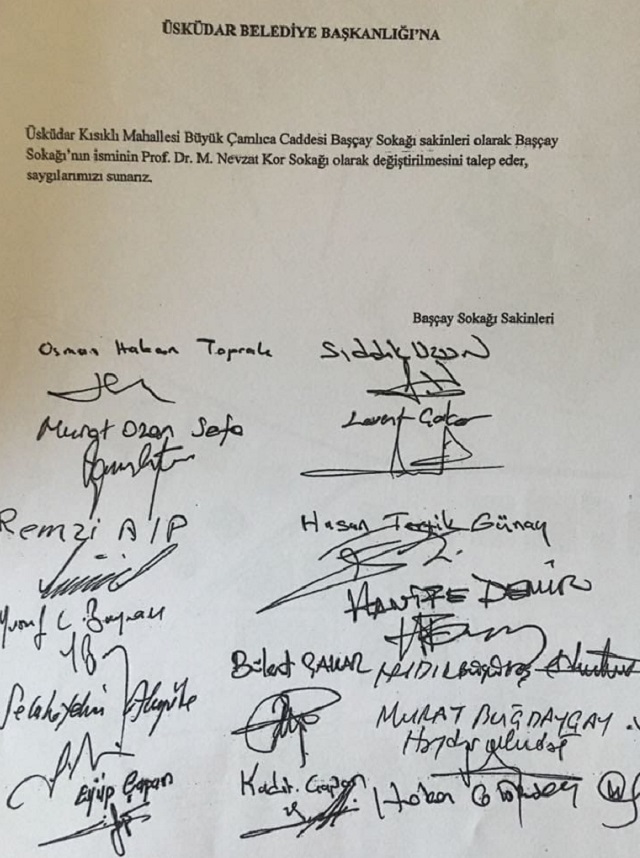 ÜSKÜDAR BELEDİYE BAŞKANLIĞI'NA
Üsküdar Kısıklı Mahallesi Büyük Çamlıca Caddesi Başçay Sokağı sakinleri olarak Başçay
Sokağı'nın isminin Prof. Dr. M. Nevzat Kor Sokağı olarak değiştirilmesini talep eder,
saygılarımızı sunarız.
Başçay Sokağı Sakinleri
Osman Hakan Toprak
Sıddık UZUN
Murat Ozan Sefa
Levent
Remzi Alp
Hasan Günay
HANİFE DEMİR
Yusuf
Bülent
Selahaydin
MURAT BUĞDAYÇAY
Eyüp Çapan
Kadir Çapan